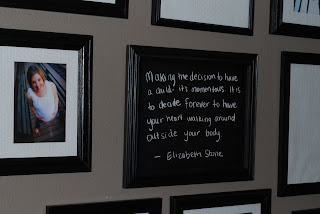 Making the decision to have
a child- it's momentous. It is
to decide forever to have
your heart walking around
outside your body.
- Elizabeth Stone